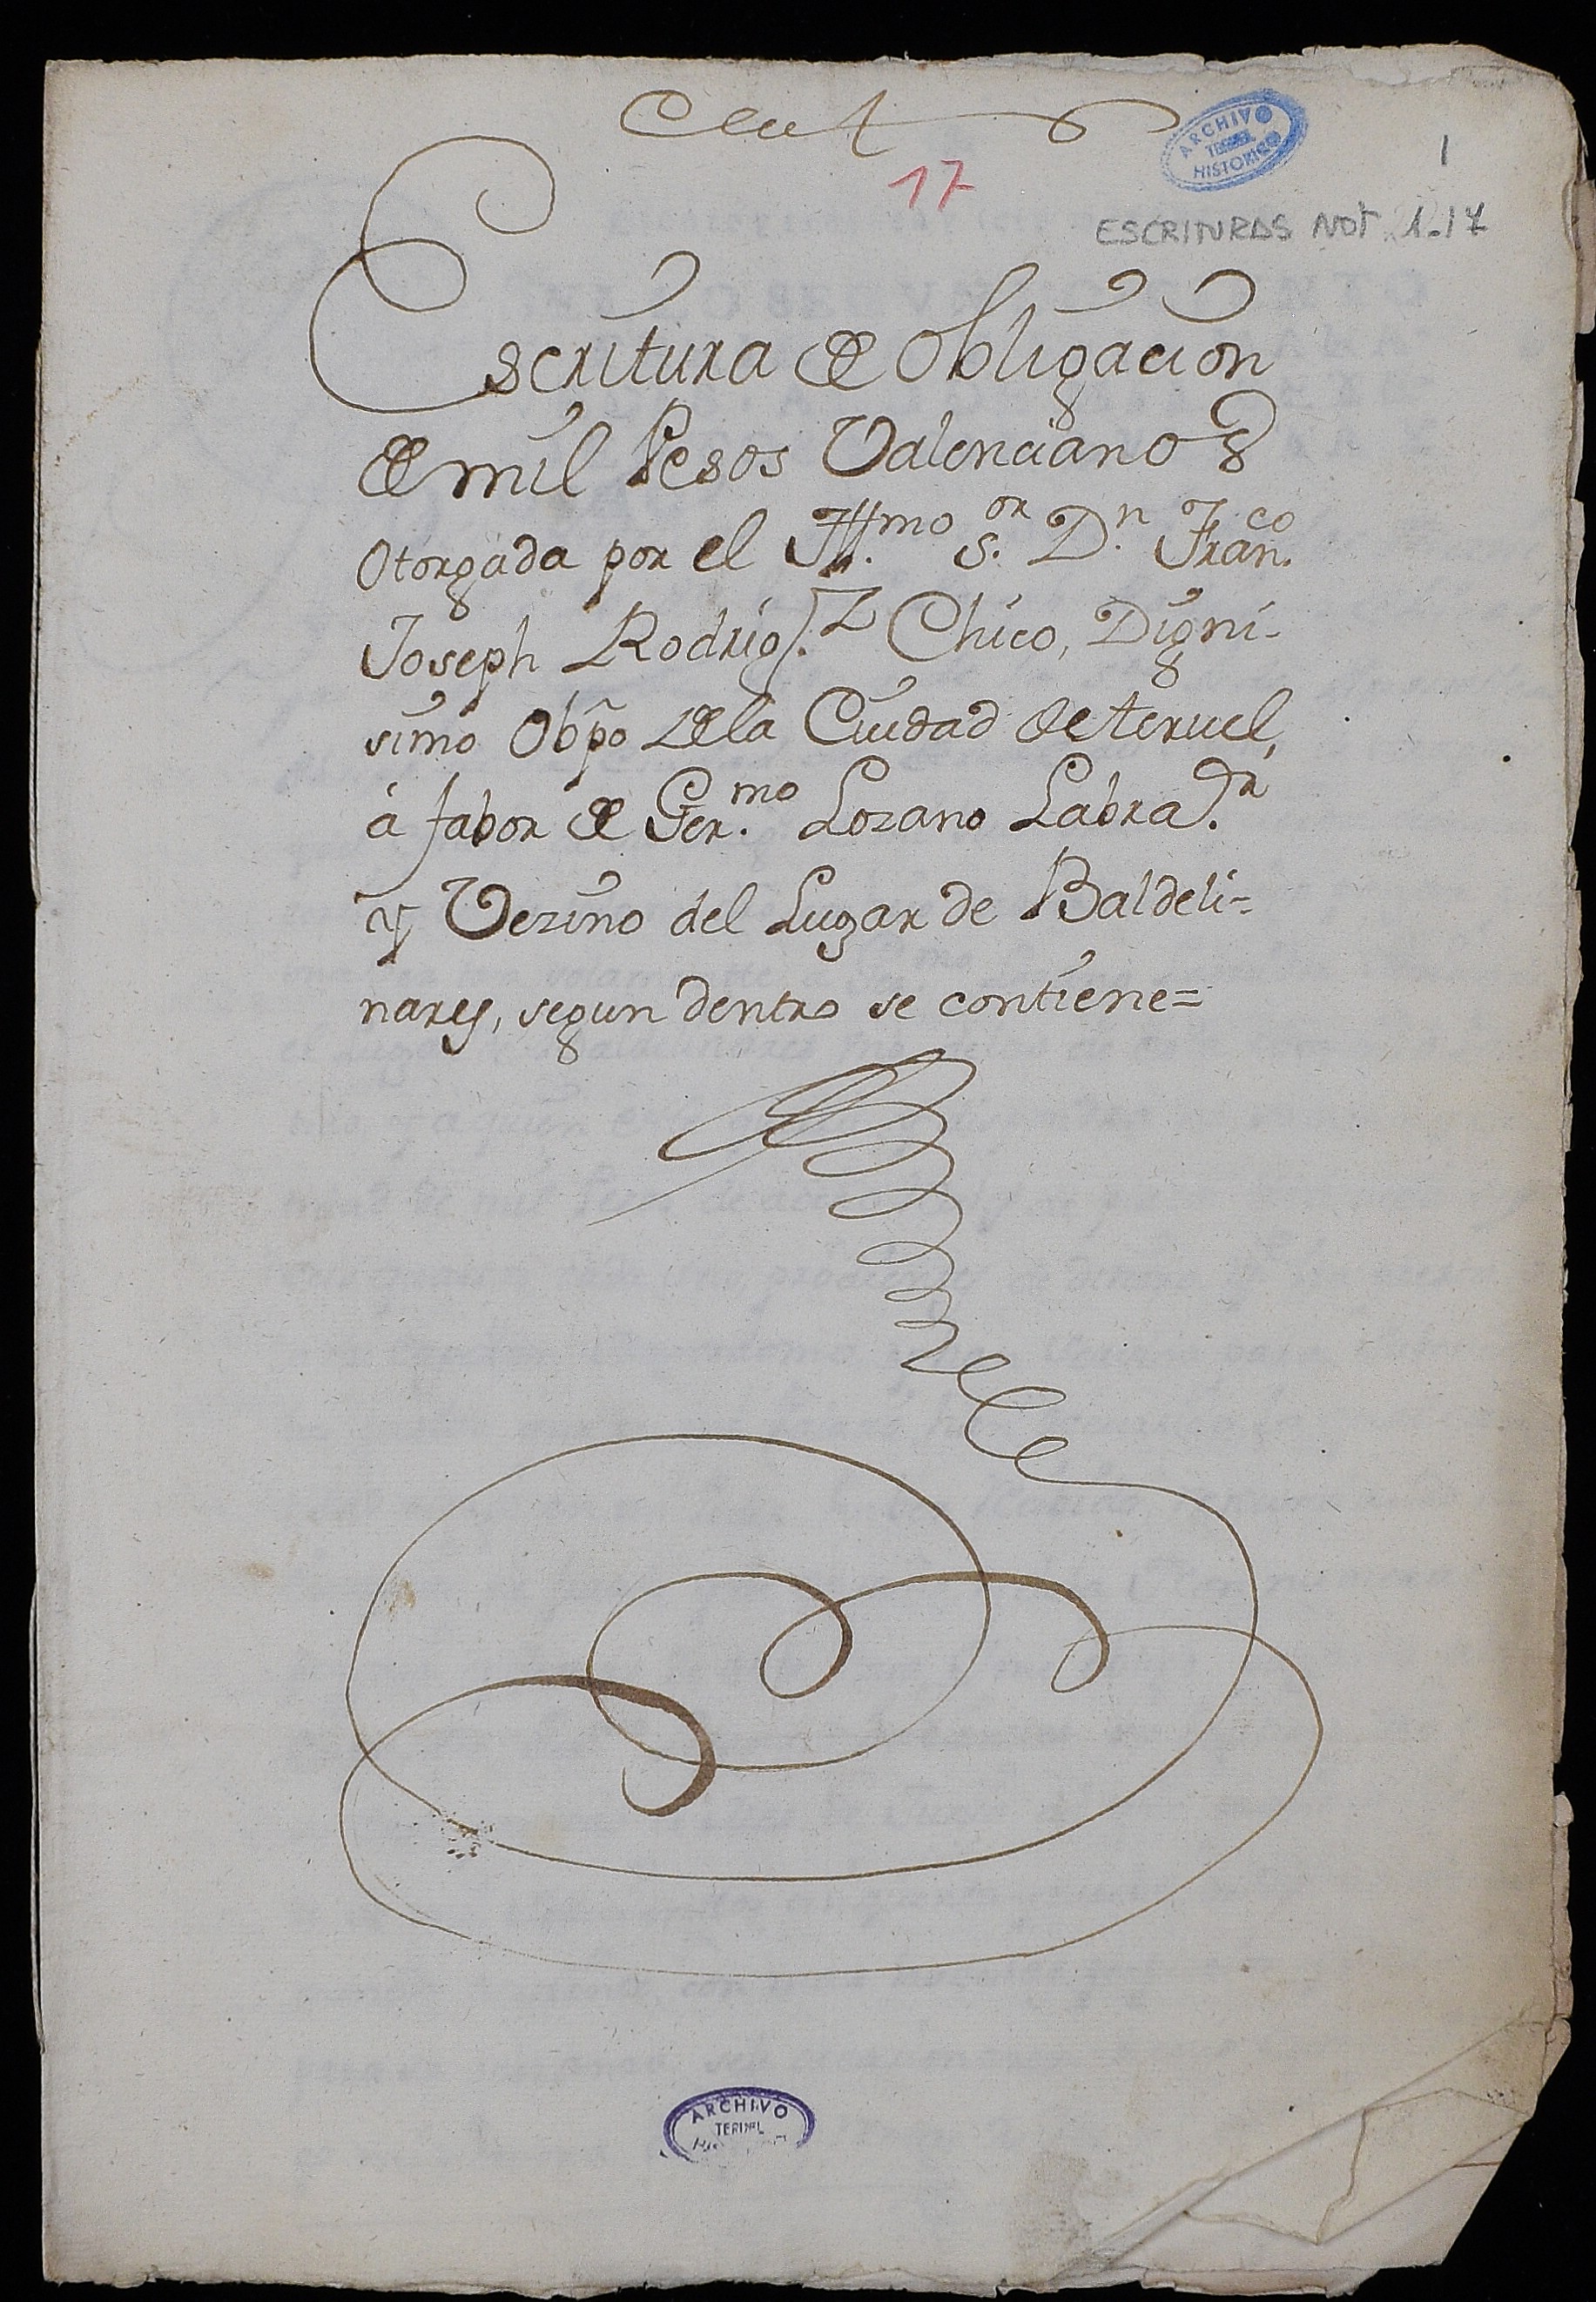 17
ARCHIVO
TERUEL
HISTORICO
1
ESCRITURAS NOT. 1.17
Escritura de Obligacion
de mil Pesos Valencianos
Otorgada por el Yll.mo S.or D.n Fran.co
Joseph Rodrig.z Chico, Digni-
simo Obpo de la Ciudad de teruel,
á fabor de Ger.mo Lozano Labrad.r
y Vezino del Lugar de Baldeli=
nares, segun dentro se contiene=
ARCHIVO
TERUEL